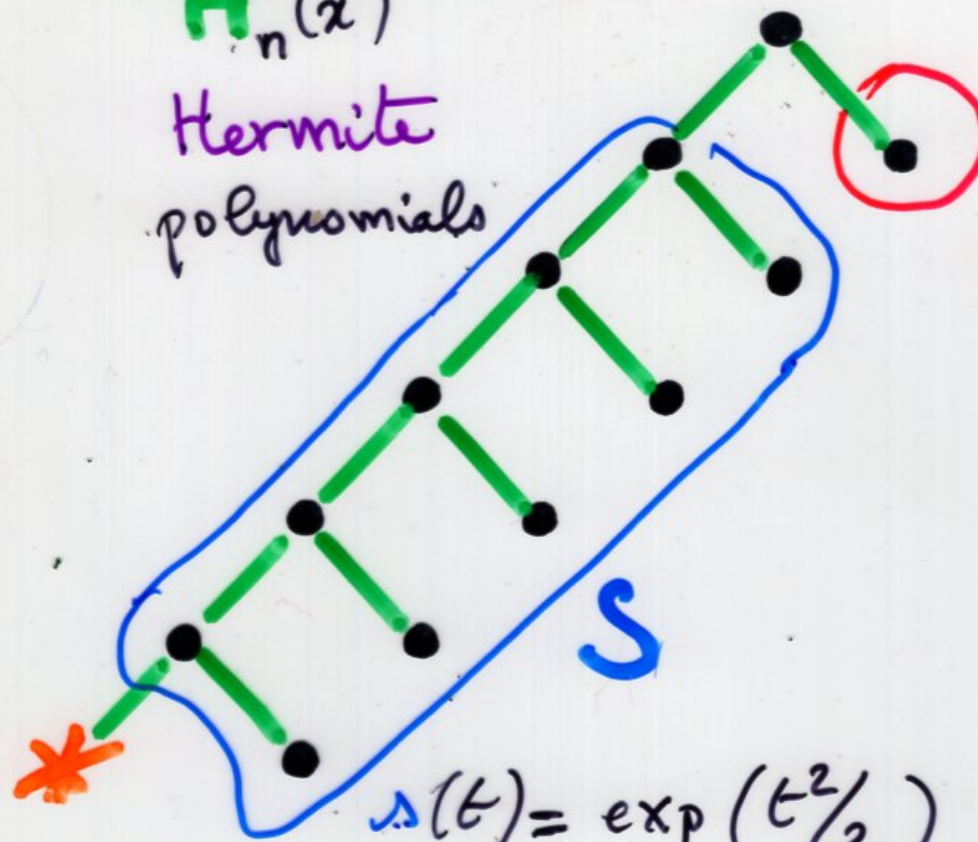 Hₙ(x)
Hermite
polynomials
S
s(t) = exp(t²/2)